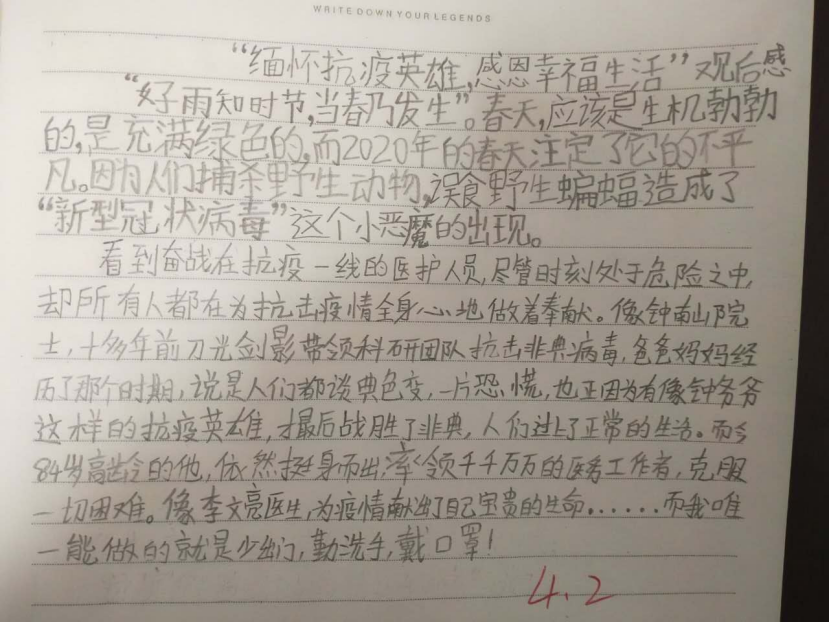 WRITE DOWN YOUR LEGENDS
“缅怀抗疫英雄,感恩幸福生活”观后感
“好雨知时节,当春乃发生”。春天,应该是生机勃勃
的,是充满绿色的,而2020年的春天注定了它的不平
凡。因为人们捕杀野生动物,误食野生蝙蝠造成了
“新型冠状病毒”这个小恶魔的出现。
看到奋战在抗疫一线的医护人员,尽管时刻处于危险之中,
却所有人都在为抗击疫情全身心地做着奉献。像钟南山院
士,十多年前刀光剑影带领科研团队抗击非典病毒,爸爸妈妈经
历了那个时期,说是人们都谈典色变,一片恐慌,也正因为有像钟爷爷
这样的抗疫英雄,才最后战胜了非典,人们过上了正常的生活。而今
84岁高龄的他,依然挺身而出,率领千千万万的医务工作者,克服
一切困难。像李文亮医生,为疫情献出了自己宝贵的生命......而我唯
一能做的就是少出门,勤洗手,戴口罩!
4.2